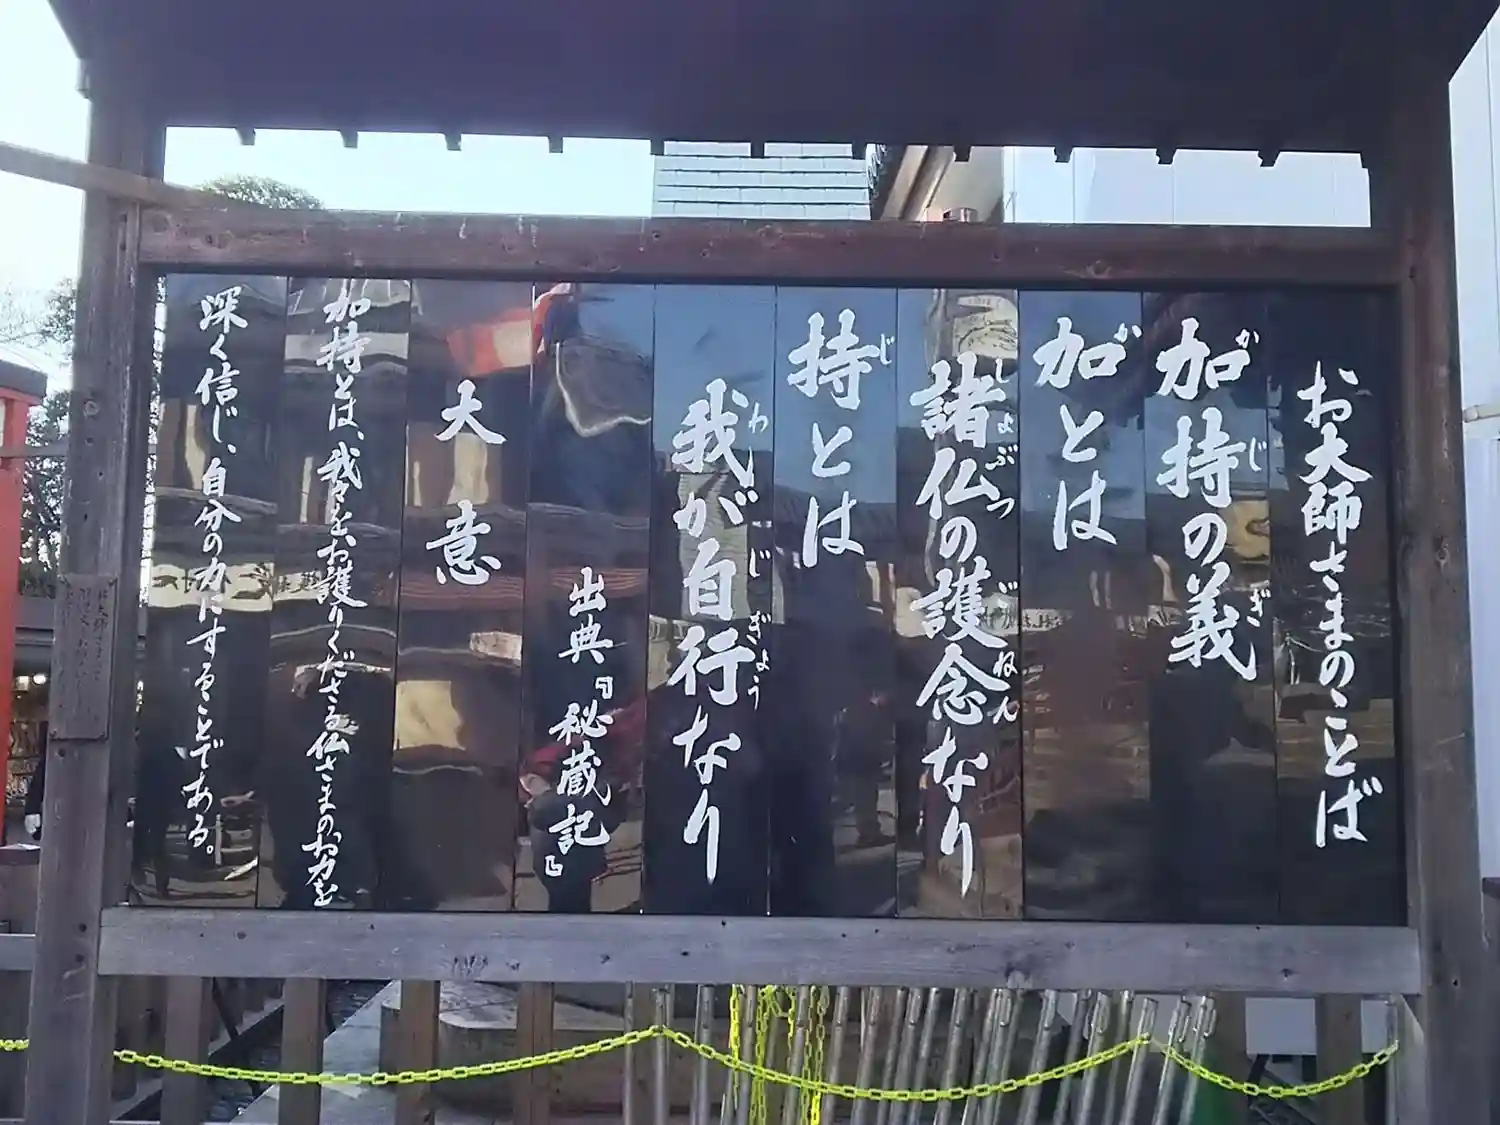 お大師さまのことば
加持の義
かじぎ
加とは
か
諸仏の護念なり
しょぶつごねん
持とは
じ
我が自行なり
わじぎょう
出典『秘蔵記』
大意
加持とは、我々をお護りくださる仏さまのお力を
深く信じ、自分の力にすることである。